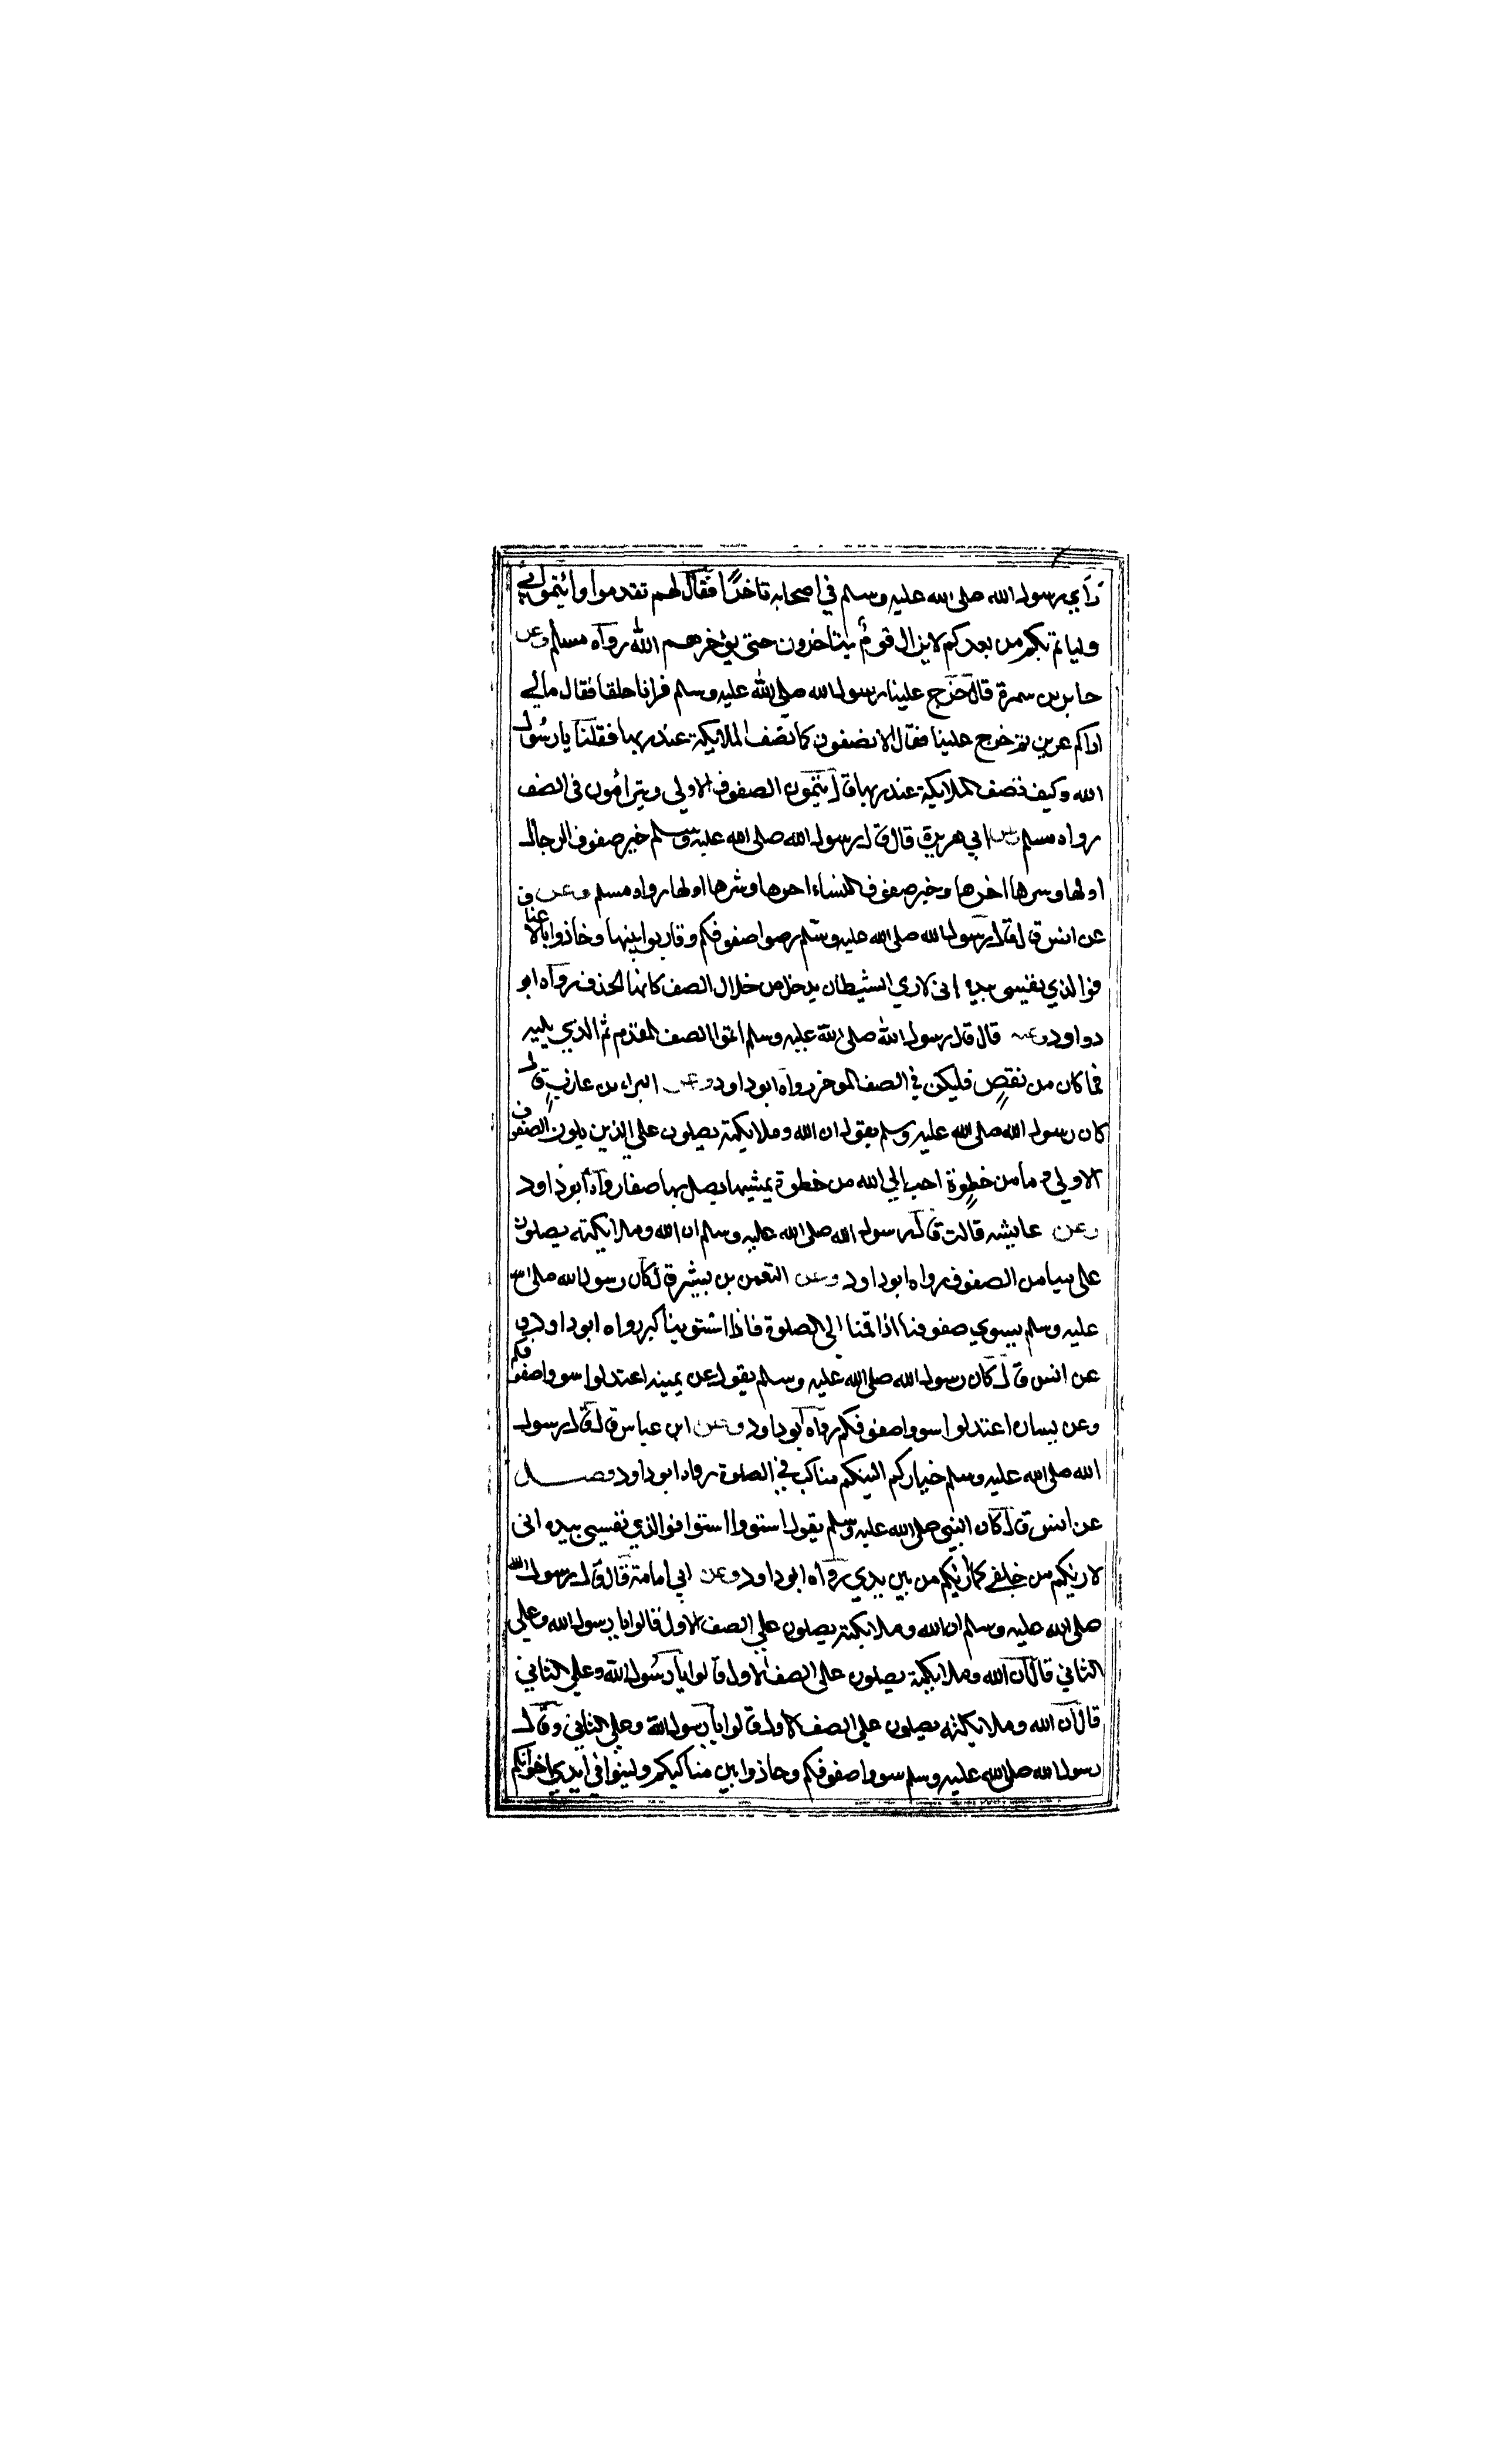 رأي رسول الله صلى الله عليه وسلم في اصحابه تاخرًا فقال لهم تقدموا وائتموا بي
ولياتم بكم من بعدكم لا يزال قومٌ يتاخرون حتى يؤخرهم الله رواه مسلم وعن
جابر بن سمرة قال خرج علينا رسول الله صلي الله عليه وسلم فرانا حلقا فقال مالي
اراكم عزين ثم خرج علينا فقال الا تصفون كما تصف الملائكة عند ربها فقلنا يا رسول
الله وكيف تصف الملائكة عند ربها قال يتمون الصفوف الاولي ويتراصون في الصف
رواه مسلم وعن ابي هريرة قال قال رسول الله صلى الله عليه وسلم خير صفوف الرجال
اولها وشرها اخرها وخير صفوف النساء اخرها وشرها اولها رواه مسلم
عن انس قال قال رسول الله صلى الله عليه وسلم رصوا صفوفكم وقاربوا بينها وحاذوا بالاعناق
فوالذي نفسي بيده اني لاري الشيطان يدخل من خلال الصف كانها الحذف رواه ابو
دواود وعنه قال قال رسول الله صلى الله عليه وسلم اتموا الصف المقدم ثم الذي يليه
فما كان من نقصٍ فليكن في الصف الموخر رواه ابو داود وعن البراء بن عازبٍ قال
كان رسول الله صلي الله عليه وسلم يقول ان الله وملائكته يصلون علي الذين يلون الصفوف
الاولي وما من خطوة احب الي الله من خطوة يمشيها يصل بها صفا رواه ابو داود
وعن عايشه قالت قال رسول الله صلى الله عليه وسلم ان الله وملائكته يصلون
على ميامن الصفوف رواه ابو داود وعن النعمن بن بشير قال كان رسول الله صلى الله
عليه وسلم يسوي صفوفنا اذا قمنا الى الصلوة فاذا استوينا كبر رواه ابو داود و
عن انس قال كان رسول الله صلى الله عليه وسلم يقول عن يمينه اعتدلوا سووا صفوفكم
وعن يساره اعتدلوا سووا صفوفكم رواه ابو داود وعن ابن عباس قال قال رسول
الله صلى الله عليه وسلم خياركم الينكم مناكب في الصلوة رواه ابو داود فصل
عن انس قال كان النبي صلى الله عليه وسلم يقول استووا استووا فوالذي نفسي بيده اني
لاريكم من خلفي كما اريكم من بين يدي رواه ابو داود وعن ابي امامة قال قال رسول الله
صلى الله عليه وسلم ان الله وملائكته يصلون علي الصف الاول قالوا يا رسول الله وعلي
الثاني قال ان الله وملائكته يصلون على الصف الاول قالوا يا رسول الله وعلي الثاني
قال ان الله وملائكته يصلون علي الصف الاول قالوا يا رسول الله وعلي الثاني وقال
رسول الله صلى الله عليه وسلم سووا صفوفكم وحاذوا بين مناكبكم ولينوا في ايدي اخوانكم